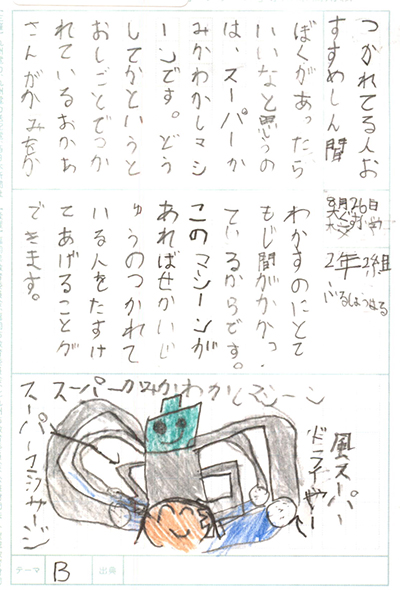 つかれてる人お
すすめしん聞
ぼくがあったら
いいなと思うの
は、スーパーか
みかわかしマシ
ーンです。どう
してかというと
おしごとでつか
れているおかあ
さんがかみをか
8月26日
2年2組
わかすのにとて
もじ間がかかっ
ているからです。
このマシーンが
あればせかいじ
ゅうのつかれて
いる人をたすけ
てあげることが
できます。
スーパーかみかわかしマシーン
風スーパー
ドライヤー
スーパーマッサージ
テーマ B